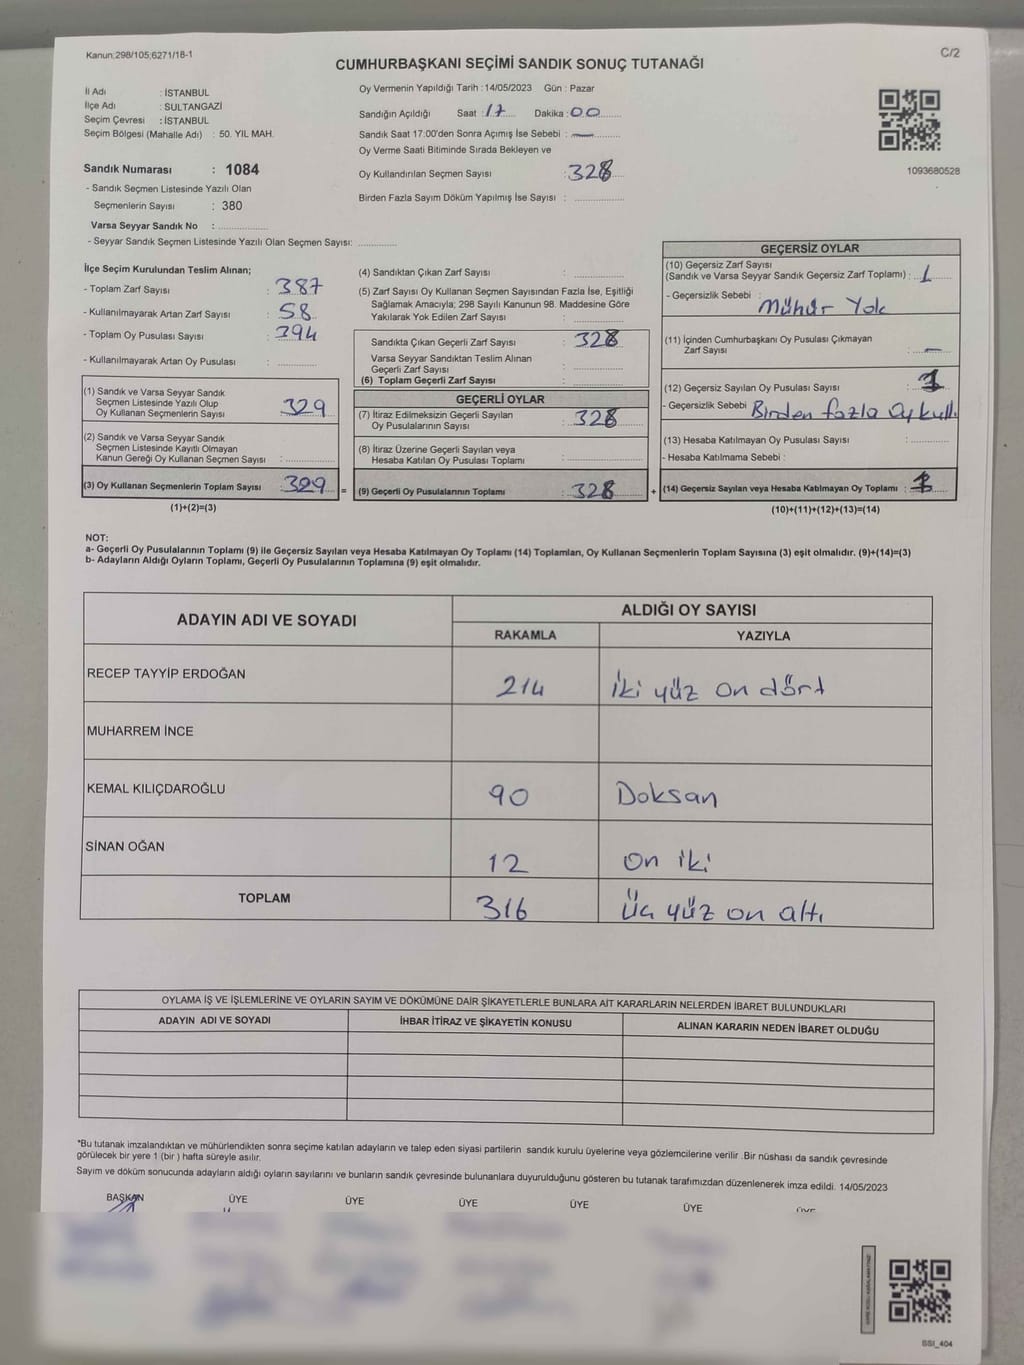 Kanun;298/105;6271/18-1
C/2
CUMHURBAŞKANI SEÇİMİ SANDIK SONUÇ TUTANAĞI
İl Adı : İSTANBUL
İlçe Adı : SULTANGAZİ
Seçim Çevresi : İSTANBUL
Seçim Bölgesi (Mahalle Adı) : 50. YIL MAH.
Oy Vermenin Yapıldığı Tarih : 14/05/2023 Gün : Pazar
Sandığın Açıldığı Saat : 17 Dakika : 00
Sandık Saat 17:00'den Sonra Açımış İse Sebebi : —
Oy Verme Saati Bitiminde Sırada Bekleyen ve
Oy Kullandırılan Seçmen Sayısı : 328
Birden Fazla Sayım Döküm Yapılmış İse Sayısı :
1093680528
Sandık Numarası : 1084
- Sandık Seçmen Listesinde Yazılı Olan
Seçmenlerin Sayısı : 380
Varsa Seyyar Sandık No :
- Seyyar Sandık Seçmen Listesinde Yazılı Olan Seçmen Sayısı:
İlçe Seçim Kurulundan Teslim Alınan;
- Toplam Zarf Sayısı : 387
- Kullanılmayarak Artan Zarf Sayısı : 58
- Toplam Oy Pusulası Sayısı : 394
- Kullanılmayarak Artan Oy Pusulası :
(1) Sandık ve Varsa Seyyar Sandık
Seçmen Listesinde Yazılı Olup
Oy Kullanan Seçmenlerin Sayısı : 329
(2) Sandık ve Varsa Seyyar Sandık
Seçmen Listesinde Kayıtlı Olmayan
Kanun Gereği Oy Kullanan Seçmen Sayısı :
(3) Oy Kullanan Seçmenlerin Toplam Sayısı : 329 =
(1)+(2)=(3)
(4) Sandıktan Çıkan Zarf Sayısı :
(5) Zarf Sayısı Oy Kullanan Seçmen Sayısından Fazla İse, Eşitliği
Sağlamak Amacıyla; 298 Sayılı Kanunun 98. Maddesine Göre
Yakılarak Yok Edilen Zarf Sayısı :
Sandıkta Çıkan Geçerli Zarf Sayısı : 328
Varsa Seyyar Sandıktan Teslim Alınan
Geçerli Zarf Sayısı :
(6) Toplam Geçerli Zarf Sayısı :
GEÇERLİ OYLAR
(7) İtiraz Edilmeksizin Geçerli Sayılan
Oy Pusulalarının Sayısı : 328
(8) İtiraz Üzerine Geçerli Sayılan veya
Hesaba Katılan Oy Pusulası Toplamı :
(9) Geçerli Oy Pusulalarının Toplamı : 328 +
GEÇERSİZ OYLAR
(10) Geçersiz Zarf Sayısı
(Sandık ve Varsa Seyyar Sandık Geçersiz Zarf Toplamı) : 1
- Geçersizlik Sebebi : Mühür Yok
(11) İçinden Cumhurbaşkanı Oy Pusulası Çıkmayan
Zarf Sayısı : —
(12) Geçersiz Sayılan Oy Pusulası Sayısı :
- Geçersizlik Sebebi : Birden fazla oy kull.
(13) Hesaba Katılmayan Oy Pusulası Sayısı :
- Hesaba Katılmama Sebebi :
(14) Geçersiz Sayılan veya Hesaba Katılmayan Oy Toplamı :
(10)+(11)+(12)+(13)=(14)
NOT:
a- Geçerli Oy Pusulalarının Toplamı (9) ile Geçersiz Sayılan veya Hesaba Katılmayan Oy Toplamı (14) Toplamları, Oy Kullanan Seçmenlerin Toplam Sayısına (3) eşit olmalıdır. (9)+(14)=(3)
b- Adayların Aldığı Oyların Toplamı, Geçerli Oy Pusulalarının Toplamına (9) eşit olmalıdır.
ADAYIN ADI VE SOYADI ALDIĞI OY SAYISI
RAKAMLA YAZIYLA
RECEP TAYYİP ERDOĞAN 214 İki yüz on dört
MUHARREM İNCE
KEMAL KILIÇDAROĞLU 90 Doksan
SİNAN OĞAN 12 on iki
TOPLAM 316 Üç yüz on altı
OYLAMA İŞ VE İŞLEMLERİNE VE OYLARIN SAYIM VE DÖKÜMÜNE DAİR ŞİKAYETLERLE BUNLARA AİT KARARLARIN NELERDEN İBARET BULUNDUKLARI
ADAYIN ADI VE SOYADI İHBAR İTİRAZ VE ŞİKAYETİN KONUSU ALINAN KARARIN NEDEN İBARET OLDUĞU
*Bu tutanak imzalandıktan ve mühürlendikten sonra seçime katılan adayların ve talep eden siyasi partilerin sandık kurulu üyelerine veya gözlemcilerine verilir .Bir nüshası da sandık çevresinde
görülecek bir yere 1 (bir ) hafta süreyle asılır.
Sayım ve döküm sonucunda adayların aldığı oyların sayılarını ve bunların sandık çevresinde bulunanlara duyurulduğunu gösteren bu tutanak tarafımızdan düzenlenerek imza edildi. 14/05/2023
BAŞKAN ÜYE ÜYE ÜYE ÜYE ÜYE ÜYE
SSI_404